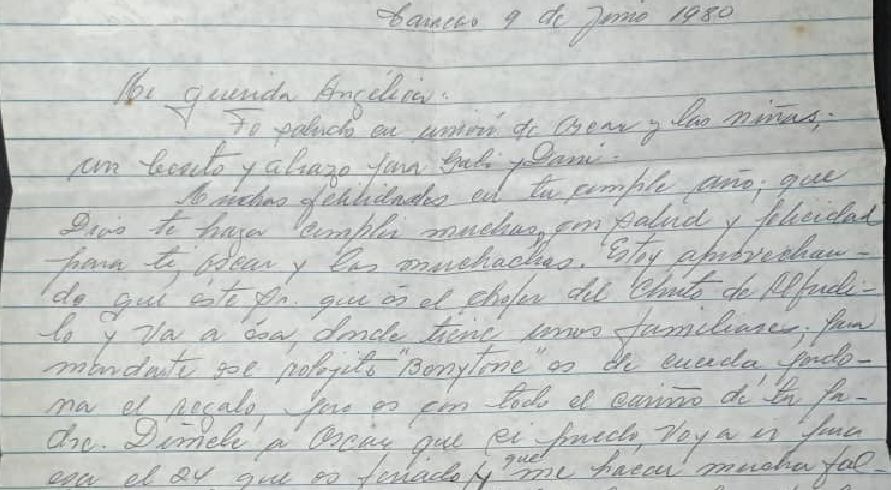 Caracas 9 de Junio 1980
Mi querida Angélica:
Te saludo en unión de Oscar y las niñas;
un besito y abrazo para Gabi y Dani.
Muchas felicidades en tu cumple año; que
Dios te haga cumplir muchos, con salud y felicidad
para ti, Oscar y las muchachas. Estoy aprovechan-
do que éste Sr. que es el chofer del Chuto de Alfredi-
to y va a ésa, donde tiene unos familiares; para
mandarte ese relojito "Bonytone" es de cuerda, perdo-
na el regalo, pero es con todo el cariño de tu Pa-
dre. Dimele a Oscar que si puedo, voy a ir para
esa el 24 que es feriado y que me hacen mucha fal-